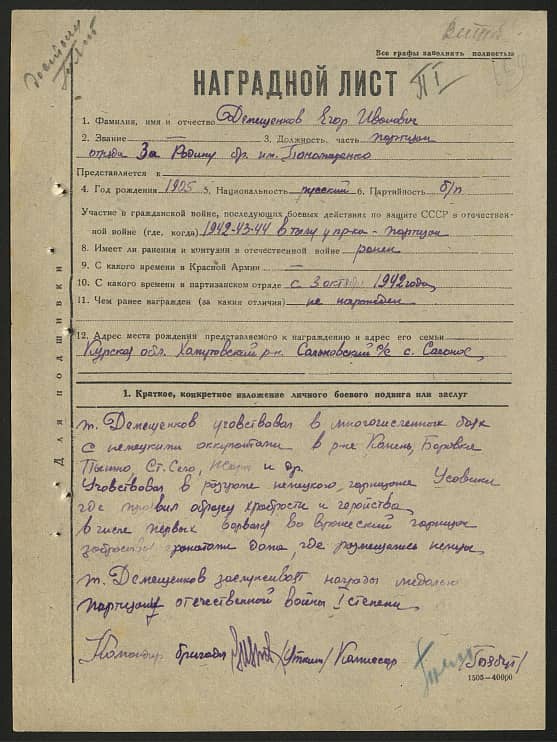 Все графы заполнить полностью
НАГРАДНОЙ ЛИСТ
1. Фамилия, имя и отчество Демещенков Егор Иванович
2. Звание — 3. Должность, часть партизан
отряда За Родину бр. им. Пономаренко
Представляется к
4. Год рождения 1905 5. Национальность русский 6. Партийность б/п
Участие в гражданской войне, последующих боевых действиях по защите СССР в отечествен-
ной войне (где, когда) 1942-43-44 в тылу у пр-ка - партизан
8. Имеет ли ранения и контузии в отечественной войне ранен
9. С какого времени в Красной Армии —
10. С какого времени в партизанском отряде с 3 октября 1942 года
11. Чем ранее награжден (за какие отличия) не награжден
12. Адрес места рождения представляемого к награждению и адрес его семьи
Курская обл. р-н. с/с с.
Для подшивки
1. Краткое, конкретное изложение личного боевого подвига или заслуг
т. Демещенков учавствовал в многочисленных боях
с немецкими оккупантами в р-не Камень, Боровка
Пышно, Ст. Село, и др.
Учавствовал в разгроме немецкого гарнизона Усвики
где проявил образец храбрости и геройства,
в числе первых ворвался во вражеский гарнизон
забросал гранатами дома где размещались немцы
т. Демещенков заслуживает награды медалью
партизану отечественной войны I степени
Командир бригады /Уткин/ Комиссар
1505—40000